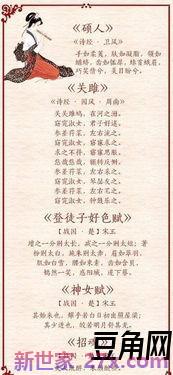 《硕人》
《诗经·卫风》
手如柔荑，肤如凝脂，领如
蝤蛴，齿如瓠犀，螓首蛾眉，
巧笑倩兮，美目盼兮。
《关雎》
《诗经·国风·周南》
关关雎鸠，在河之洲。
窈窕淑女，君子好逑。
参差荇菜，左右流之。
窈窕淑女，寤寐求之。
求之不得，寤寐思服。
悠哉悠哉，辗转反侧。
参差荇菜，左右采之。
窈窕淑女，琴瑟友之。
参差荇菜，左右芼之。
窈窕淑女，钟鼓乐之。
《登徒子好色赋》
【战国·楚】宋玉
增之一分则太长，减之一分则太短；著
粉则太白，施朱则太赤，眉如翠羽，
肌如白雪，腰如束素，齿如含贝，
嫣然一笑，惑阳城，迷下蔡。
《神女赋》
【战国·楚】宋玉
其始来也，耀乎若白日初出照屋梁；
其少进也，皎若明月舒其光。
《招
新世家
豆角网